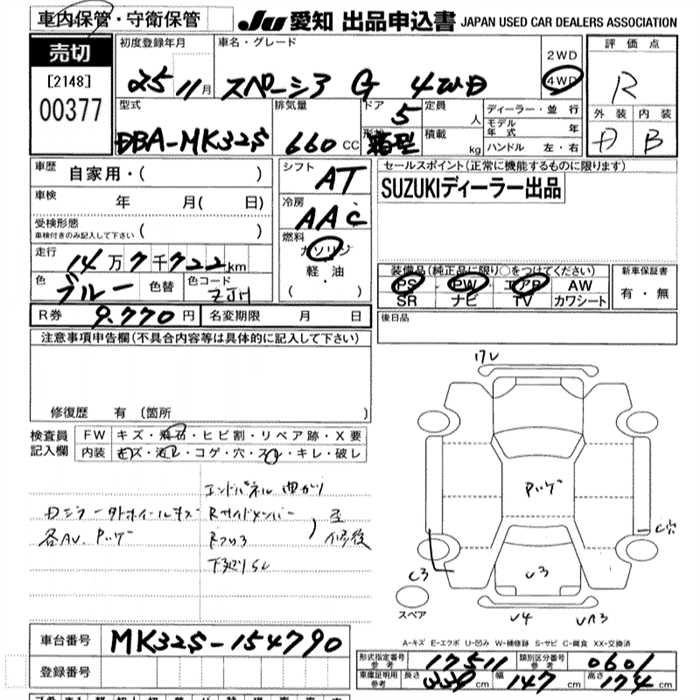 車内保管・守衛保管 JU 愛知 出品申込書 JAPAN USED CAR DEALERS ASSOCIATION
売切 初度登録年月 車名・グレード 2WD 評価点
[2148] 25 11月 スペーシア G 4WD 4WD R
00377 型式 排気量 ドア 定員 ディーラー・並行 外装 内装
DBA-MK32S 660CC 5 人 モデル年式 年 D B
形状 箱型 積載 kg ハンドル 左・右
車歴 自家用・( ) シフト AT セールスポイント(正常に機能するものに限ります)
車検 年 月( 日) 冷房 AAC SUZUKIディーラー出品
受検形態
車検付きのみ記入して下さい ( ) 燃料 ガソリン
走行 14万7千722km 軽油 装備品(純正品に限り○をつけてください) 新車保証書
色 ブルー 色替 色コード ZJH ・( ) PS PW エアB AW 有・無
SR ナビ TV カワシート
R券 9.770円 名変期限 月 日 後日品
注意事項申告欄(不具合内容等は具体的に記入して下さい)
17V
修復歴 有(箇所 )
検査員 FW キズ・飛石・ヒビ割・リペア跡・X要
記入欄 内装 キズ・汚レ・コゲ・穴・スレ・キレ・破レ
エンドパネル曲がり Pッゲ
Rサイドメンバー
各AV. Pッゲ 修復
C穴
C3 V3
スペア V4
A-キズ E-エクボ U-凹み W-補修跡 S-サビ C-腐食 XX-交換済
車台番号 MK32S-154790
形式指定番号 参考 17511 類別区分番号 参考 0601
登録番号 車庫証明用 参考 長さ 339cm 幅 147cm 高さ 174cm